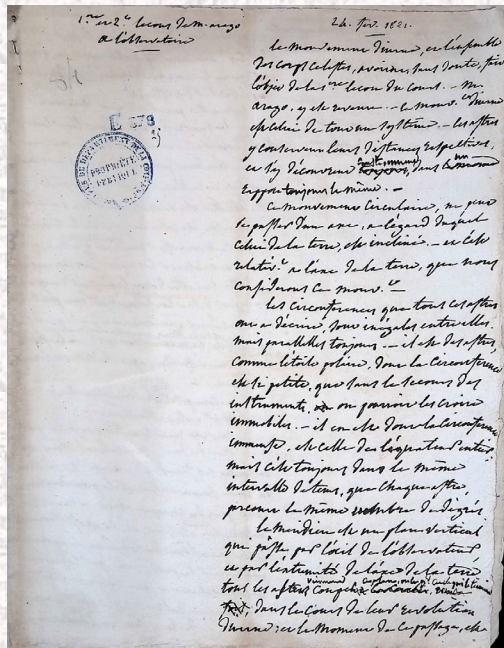 1ere et 2e lecons de M. arago
a l'observatoire
24. fev. 1821.
E 878
PROPRIÉTÉ
PUBLIQUE
le mouvement diurne, et l'ensemble
des corps celestes, avoient sans doute, fait
l'objet de la 1ere lecon du cours. — Mr.
arago, y est revenu. — ce mouv. diurne
est celui de tout un systeme. — les astres
y conservent leurs distances respectives,
et s'y decouvrent dans
toujours le même. —
Ce mouvement circulaire, ne peut
se passer d'un axe, a l'égard duquel
celui de la terre, est incliné. — et c'est
relativt. a l'axe de la terre, que nous
considerons ce mouv.t —
les circonferences que tous ces astres
ont a décrire, sont inégales entr'elles
mais paralleles toujours. — il est des astres
comme l'etoile polaire, dont la circonference
est si petite, que sans le secours des
instruments, on pourroit les croire
immobiles. — il en est dont la circonference
immense, est celle de l'équateur entier
mais c'est toujours dans le même
intervalle de tems, que chaque astre,
parcourt le même nombre de degrés
le meridien est un plan vertical
qui passe par l'oeil de l'observateur
et par l'extremité de l'axe de la terre
tous les astres viennent
dans le cours de leur revolution
diurne; et le moment de ce passage, est